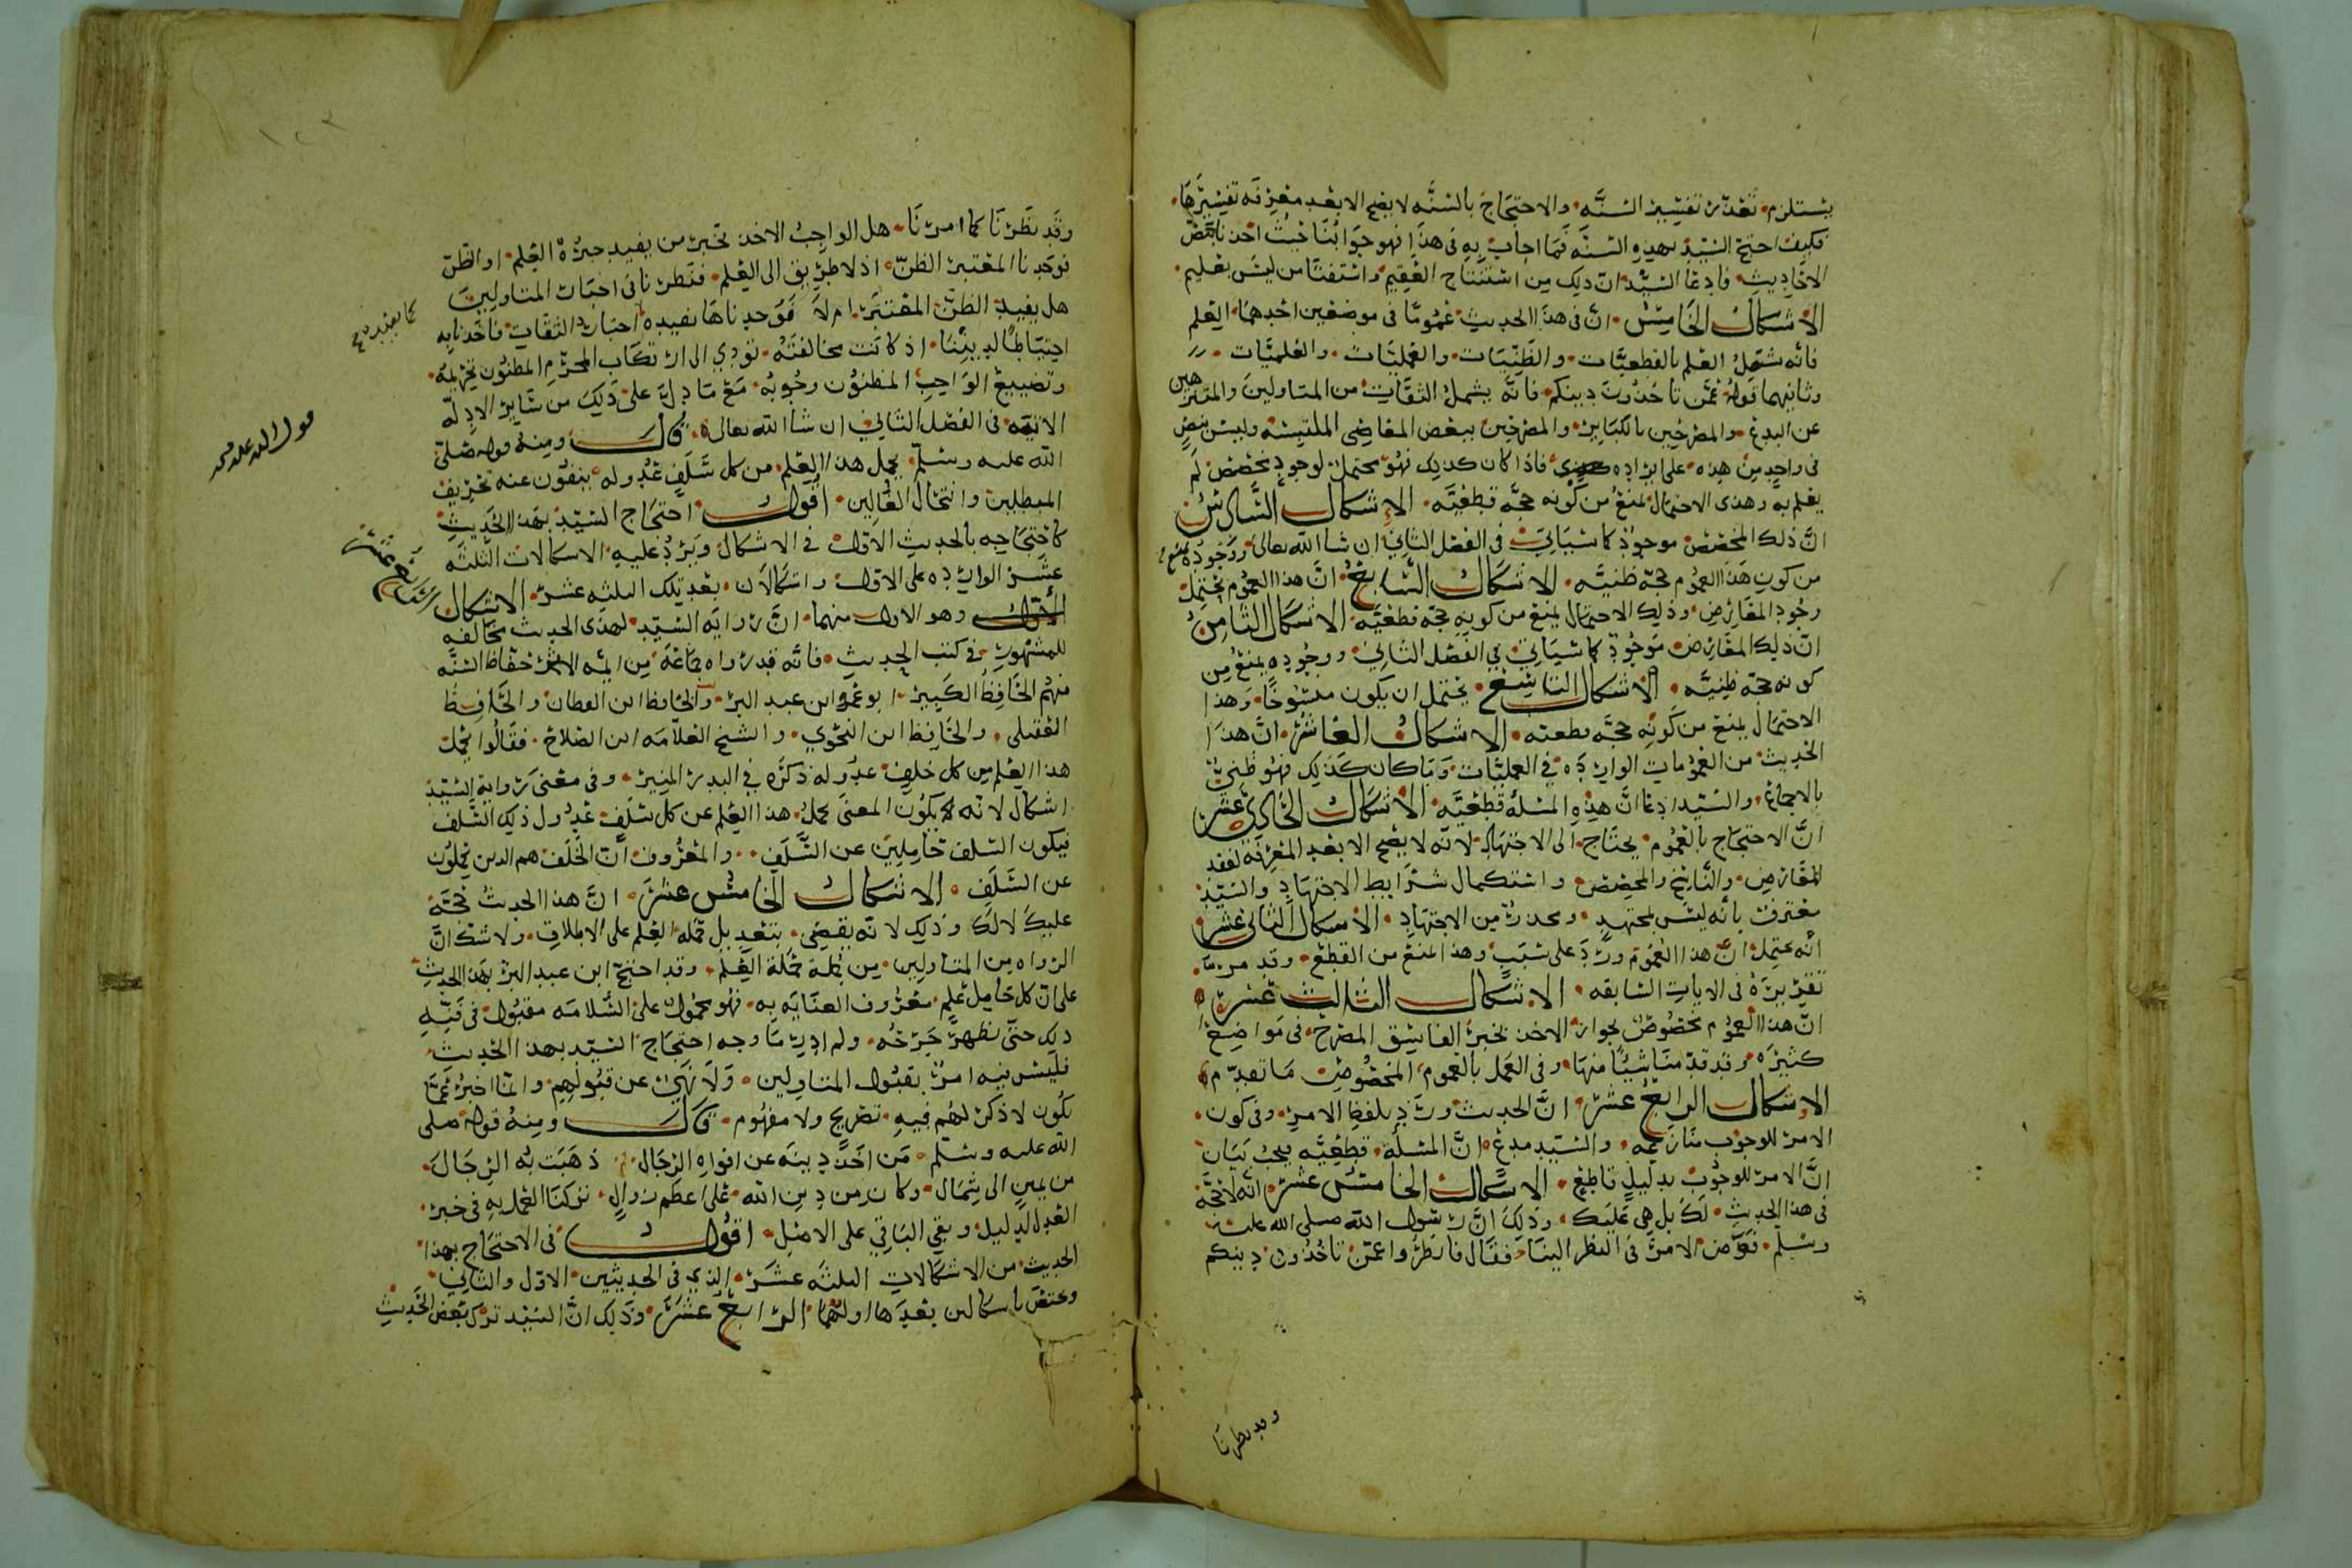 يستلزم تعذر تفسير السنه والاحتجاج بالسنه لا يصح الا بعد معرفه تفسيرها
فكيف احتج السيد بهذه السنه فما اجاب به في هذا فهو جوابنا حيث اخذنا ببعض
الاحاديث فادعا السيد ان ذلك من استنتاج العقيم واستفتا من ليس بعليم
الاشكال الخامس ان في هذا الحديث عموما في موضعين احدهما العلم
فانه شمل العلم بالقطعيات والظنيات والعمليات والعلميات
وثانيهما قوله عمن تاخذون دينكم فانه يشمل الثقات من المتاولين والمتنزهين
عن البدع والمصرحين بالكباير والمصرحين ببعض المعاصي الملتبسه وليس بنص
في واحد من هذه على انفراده فاذا كان كذلك فهو محتمل لوجود مخصص لم
يعلم به وهذى الاحتمال يمنع من كونه حجه قطعيه الاشكال السادس
ان ذلك المخصص موجود كما سياتي في الفصل الثاني ان شا الله تعالى ووجوده يمنع
من كون هذا العموم حجه ظنيه الاشكال السابع ان هذا العموم يحتمل
وجود المعارض وذلك الاحتمال يمنع من كونه حجه قطعيه الاشكال الثامن
ان ذلك المعارض موجود كما سياتي في الفصل الثاني ووجوده يمنع من
كونه حجه ظنيه الاشكال التاسع يحتمل ان يكون منسوخا وهذا
الاحتمال يمنع من كونه حجه قطعيه الاشكال العاشر ان هذا
الحديث من العمومات الوارده في العمليات وما كان كذلك فهو ظني
بالاجماع والسيد ادعا ان هذه المسله قطعيه الاشكال الحادي عشر
ان الاحتجاج بالعموم يحتاج الى الاجتهاد لانه لا يصح الا بعد المعرفه لفقد
المعارض والناسخ والمخصص واستكمال شرايط الاجتهاد والسيد
معترف بانه ليس بمجتهد ومحذر من الاجتهاد الاشكال الثاني عشر
انه يحتمل ان هذا العموم ورد على سبب وهذا المنع من القطع وقد مر
تقريره في الايات السابقه الاشكال الثالث عشر
ان هذا العموم مخصوص بجواز الاخذ بخبر الفاسق المصرح في مواضع
كثيره وقد قدمنا شيئا منها وفي العمل بالعموم المخصوص ما تقدم
الاشكال الرابع عشر ان الحديث ورد بلفظ الامر وفي كون
الامر للوجوب منازعه والسيد مدع ان المسله قطعيه يجب بيان
ان الامر للوجوب بدليل قاطع الاشكال الخامس عشر انه لا حجه
في هذا الحديث لك بل هي عليك وذلك ان رسول الله صلى الله عليه
وسلم فوض الامر في النظر الينا فقال فانظروا عمن تاخذون دينكم
وقد نظرنا
وقد نظرنا كما امرنا هل الواجب الاخذ بخبر من يفيد خبره العلم او الظن
فوجدنا المعتبر الظن اذ لا طريق الى العلم فنظرنا في اخبار المتاولين
هل يفيد الظن المعتبر ام لا فوجدناها تفيده اخبار الثقات فاخذنا به
كما تفيده
احتياطا لديننا اذ كانت مخالفته تودي الى ارتكاب المحرم المظنون تحريمه
وتضييع الواجب المظنون وجوبه مع ما دل على ذلك من ساير الادله
الاتيه في الفصل الثاني ان شا الله تعالى قال ومنه قوله صلى
الله عليه وسلم يحمل هذا العلم من كل سلف عدوله ينفون عنه تحريف
المبطلين وانتحال الغالين اقول احتجاج السيد بهذا الحديث
كاحتجاجه بالحديث الاول في الاشكال ويرد عليه الاشكالات الثلثه
عشر الوارده على الاول واشكالان بعد تلك الثلثه عشر الاشكال الرابع عشر
الاول وهو الاول منهما ان روايه السيد لهذى الحديث مخالفه
للمشهور في كتب الحديث فانه قد رواه جماعه من ايمه الاثر حفاظ السنه
منهم الحافظ الكبير ابو عمرو ابن عبد البر والحافظ ابن القطان والحافظ
العقيلي والحافظ ابن النحوي والشيخ العلامه ابن الصلاح فقالوا يحمل
هذا العلم من كل خلف عدوله ذكره في البدر المنير وفي معنى روايه السيد
اشكال لانه يكون المعنى يحمل هذا العلم عن كل سلف عدول ذلك السلف
فيكون السلف حاملين عن السلف والمعروف ان الخلف هم الذين يحملون
عن السلف الاشكال الخامس عشر ان هذا الحديث حجه
عليك لا لك وذلك لانه يقضي بتعديل حمله العلم على الاطلاق ولا شك ان
الرواه من المتاولين من جمله حمله العلم وقد احتج ابن عبد البر بهذا الحديث
على ان كل حامل علم معروف العنايه به فهو محمول على السلامه مقبول في
ذلك حتى يظهر جرحه ولم ادر ما وجه احتجاج السيد بهذا الحديث
فليس فيه امر بقبول المتاولين ولا نهي عن قبولهم وانما اخبر عما
يكون لا ذكر لهم فيه تصريح ولا مفهوم قال ومنه قوله صلى
الله عليه وسلم من اخذ دينه عن افواه الرجال ذهبت به الرجال
من يمين الى شمال وكان من دين الله على اعظم زوال تركنا العمل به في خبر
العدل لدليل وبقي الباقي على الاصل اقول في الاحتجاج بهذا
الحديث من الاشكالات الثلثه عشر الذي في الحديثين الاول والثاني
ويختص باشكالين بعدها اولهما الرابع عشر وذلك ان السيد ترك بعض الحديث